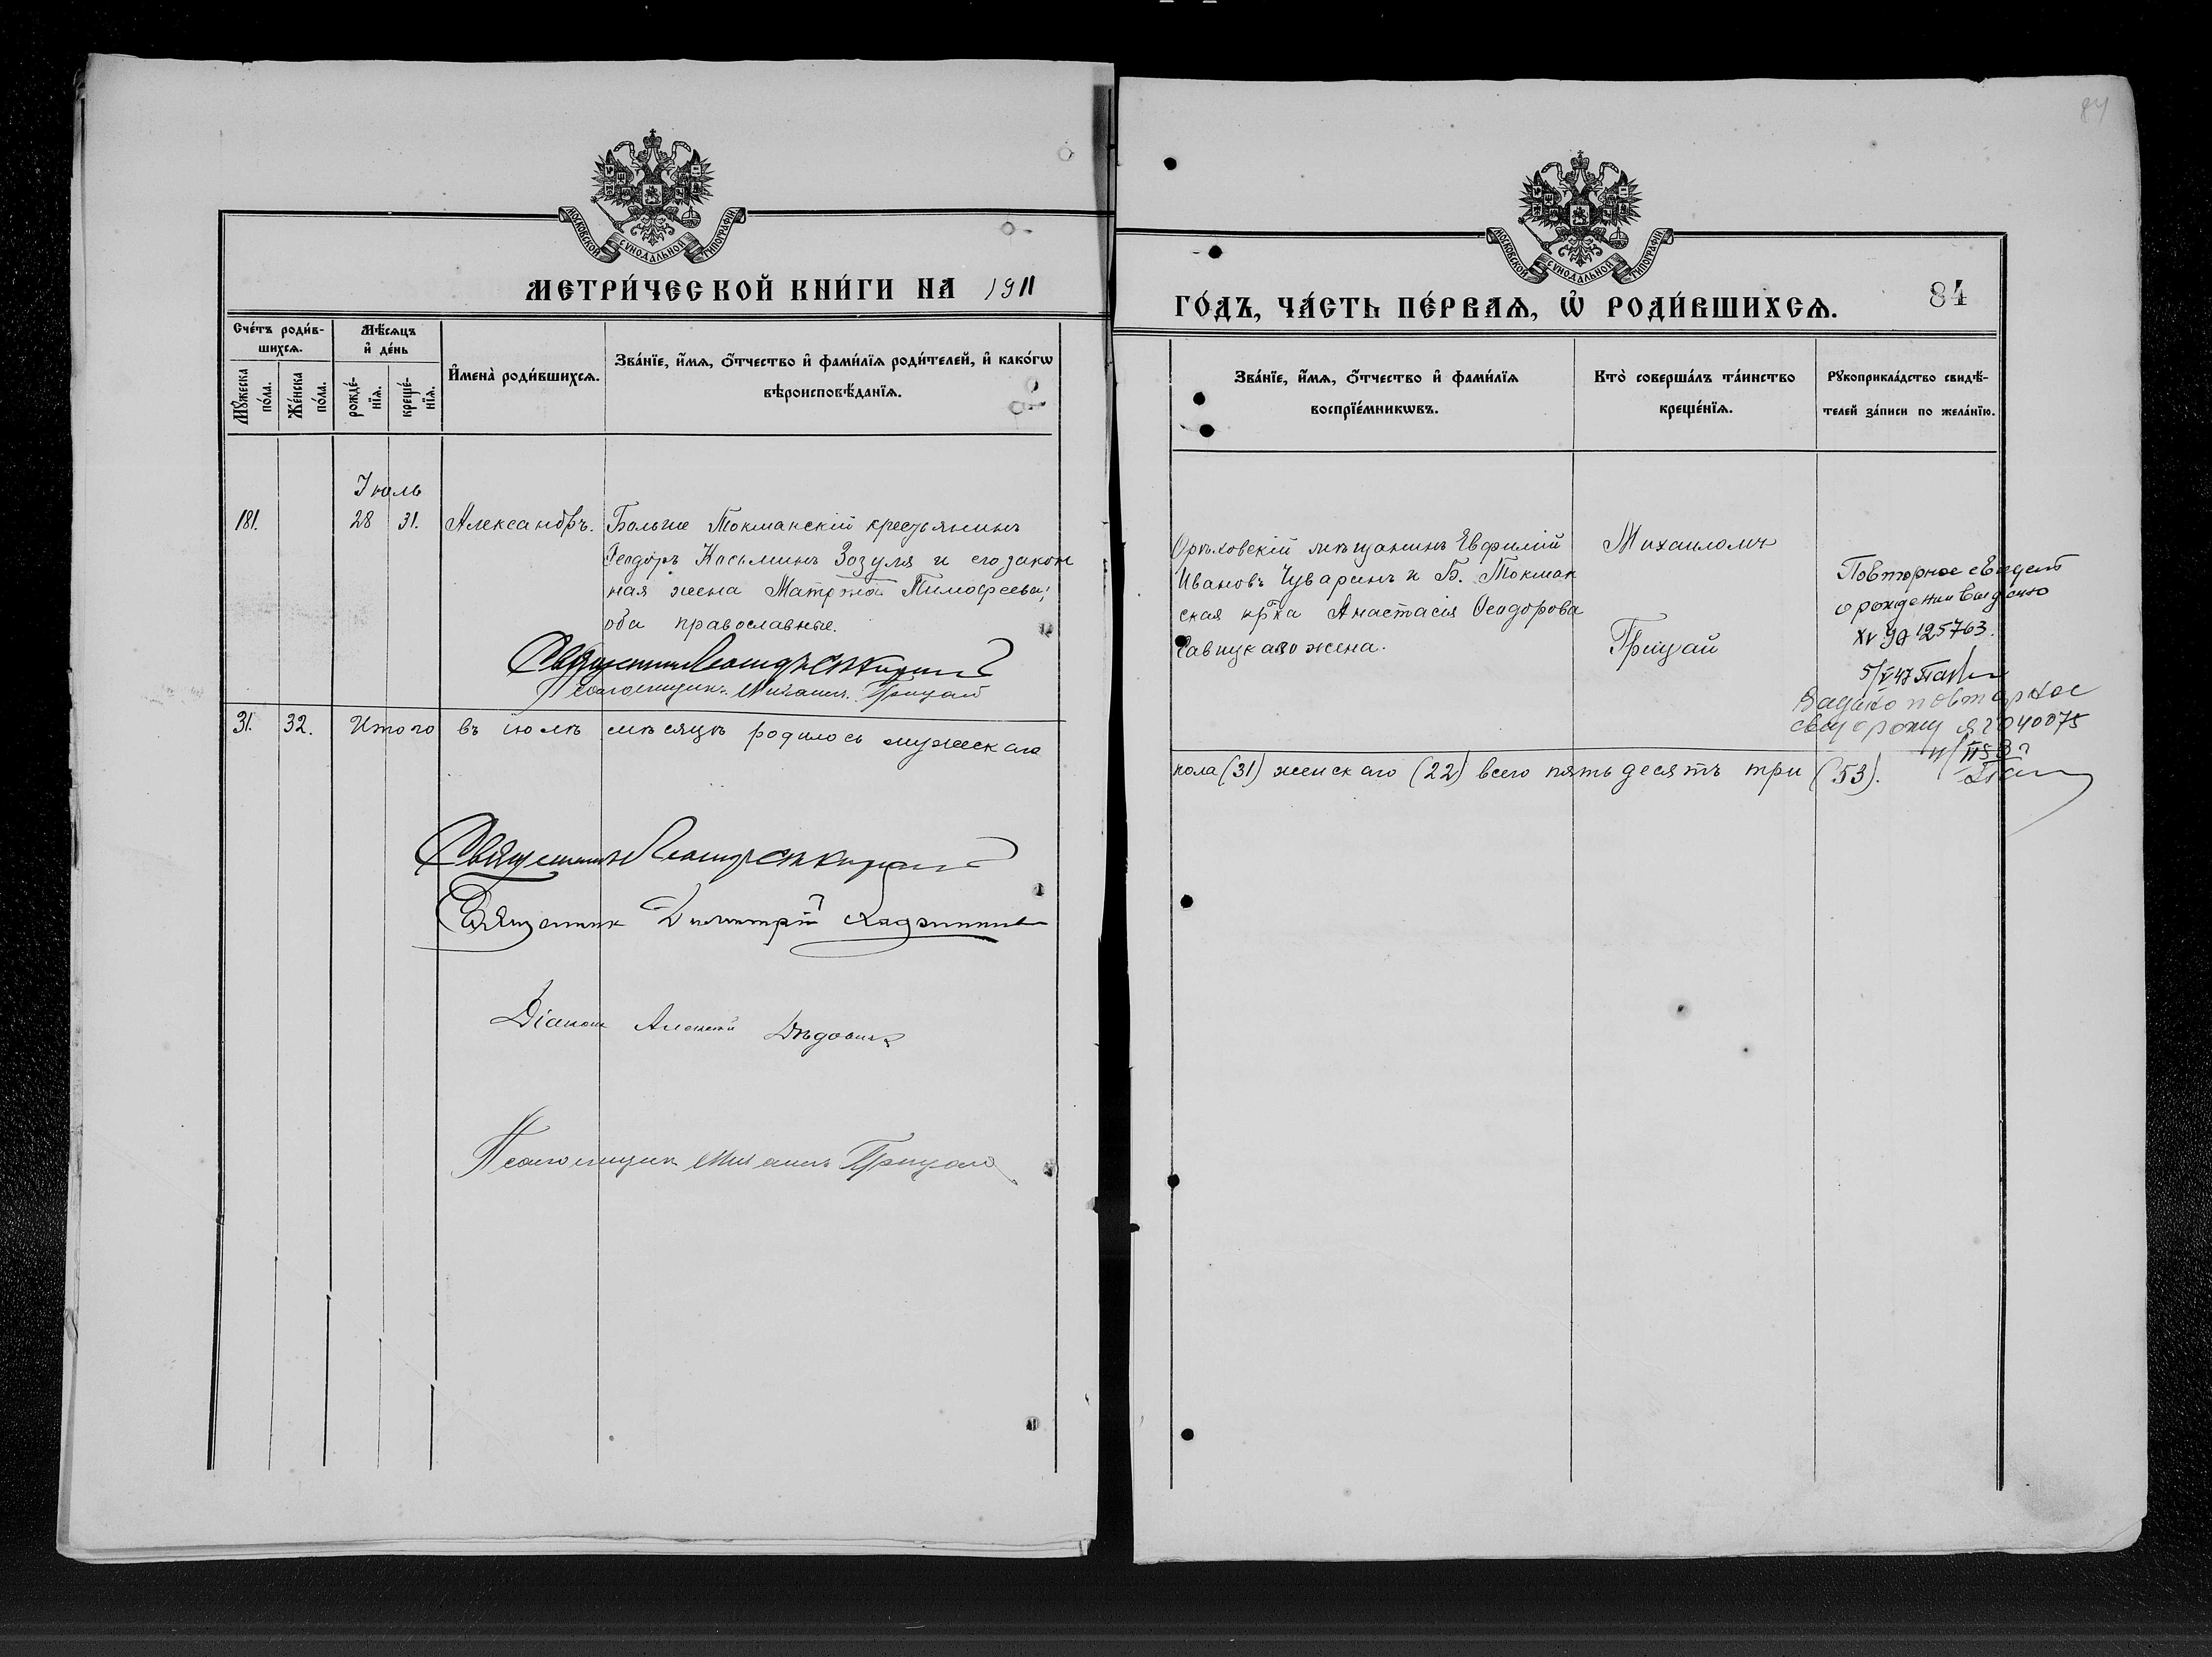 84
МОСКОВСКОЙ СѴНОДАЛЬНОЙ ТИПОГРАФІИ
МЕТРИ́ЧЕСКОЙ КНИ́ГИ НА 1911
Сче́тъ роди́в-
шихсѧ.
Мѣ́сѧцъ
и҆ де́нь
Мꙋ́жеска
по́ла.
Же́нска
по́ла.
рожде́-
нїѧ.
креще́-
нїѧ.
И҆мена̀ роди́вшихсѧ.
Зва́нїе, и҆́мѧ, ѻ҆́тчество и҆ фами́лїѧ роди́телей, и҆ како́гѡ
вѣроисповѣ́данїѧ.
Іюль
181. 28 31. Александръ. Больше Токмакскій крестьянинъ
Феодоръ Косьминъ Зозуля и его закон
ная жена Матрона Тимофеева;
оба православные.
Священникъ
Псаломщикъ Михаилъ Грицай
31. 32. Итого въ іюлѣ мѣсяцѣ родилось мужескаго
Священникъ
Священник Димитрій
Діаконъ Алексій
Псаломщикъ Михаилъ Грицай
МОСКОВСКОЙ СѴНОДАЛЬНОЙ ТИПОГРАФІИ
ГО́ДЪ, ЧА́СТЬ ПЕ́РВАѦ, Ѡ҆ РОДИ́ВШИХСѦ.
84
Зва́нїе, и҆́мѧ, ѻ҆́тчество и҆ фами́лїѧ
воспрїе́мникѡвъ.
Кто̀ соверша́лъ та́инство
креще́нїѧ.
Рꙋкоприкла́дство свидѣ́-
телей за́писи по жела́нїю.
Орѣховскій мѣщанинъ Евфимій
Ивановъ Чуваринъ и Б. Токмак
ская кр-ка Анастасія Ѳеодорова
Савицкаго жена.
Михаиломъ
Грицай
Повторное свидет
о рождении выдано
125763.
5/V 47
Выдано повторное
040075
пола (31) женскаго (22) всего пятьдесятъ три (53).